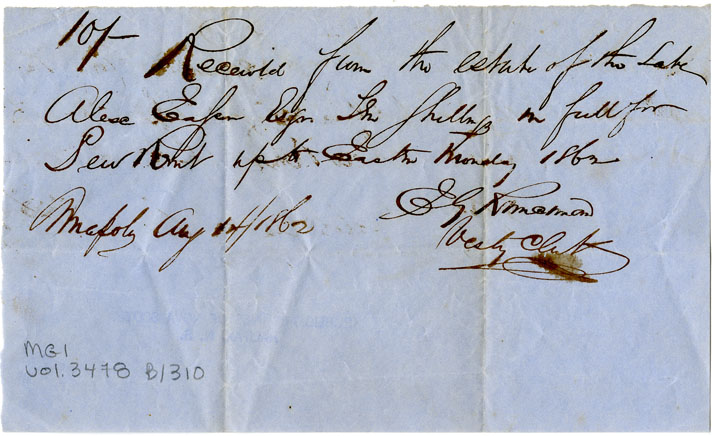 10/-
Received from the estate of the Late
Alex Eason Esqr Ten Shillings in full for
Pew Rent up to Easter Monday 1862
Annapolis Aug 14/1862
Vestry Clerk
MG1
vol. 3478 B/310